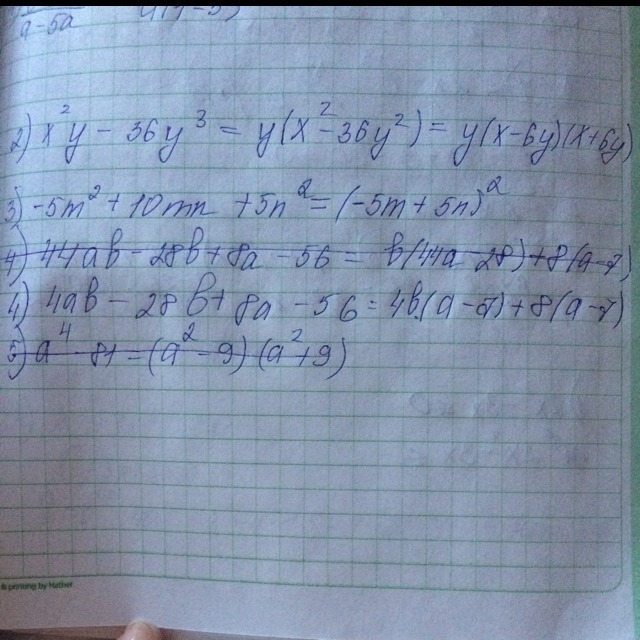 a-5a
2) x²y - 36y³ = y(x²-36y²) = y(x-6y)(x+6y)
3) -5m² + 10mn + 5n² = (-5m + 5n)²
4) 44ab - 28b + 8a - 56 = b(44a - 28) + 8(a - 7)
4) 4ab - 28b + 8a - 56 = 4b(a - 7) + 8(a - 7)
5) a⁴ - 81 = (a² - 9)(a² + 9)
& printing by Hatber